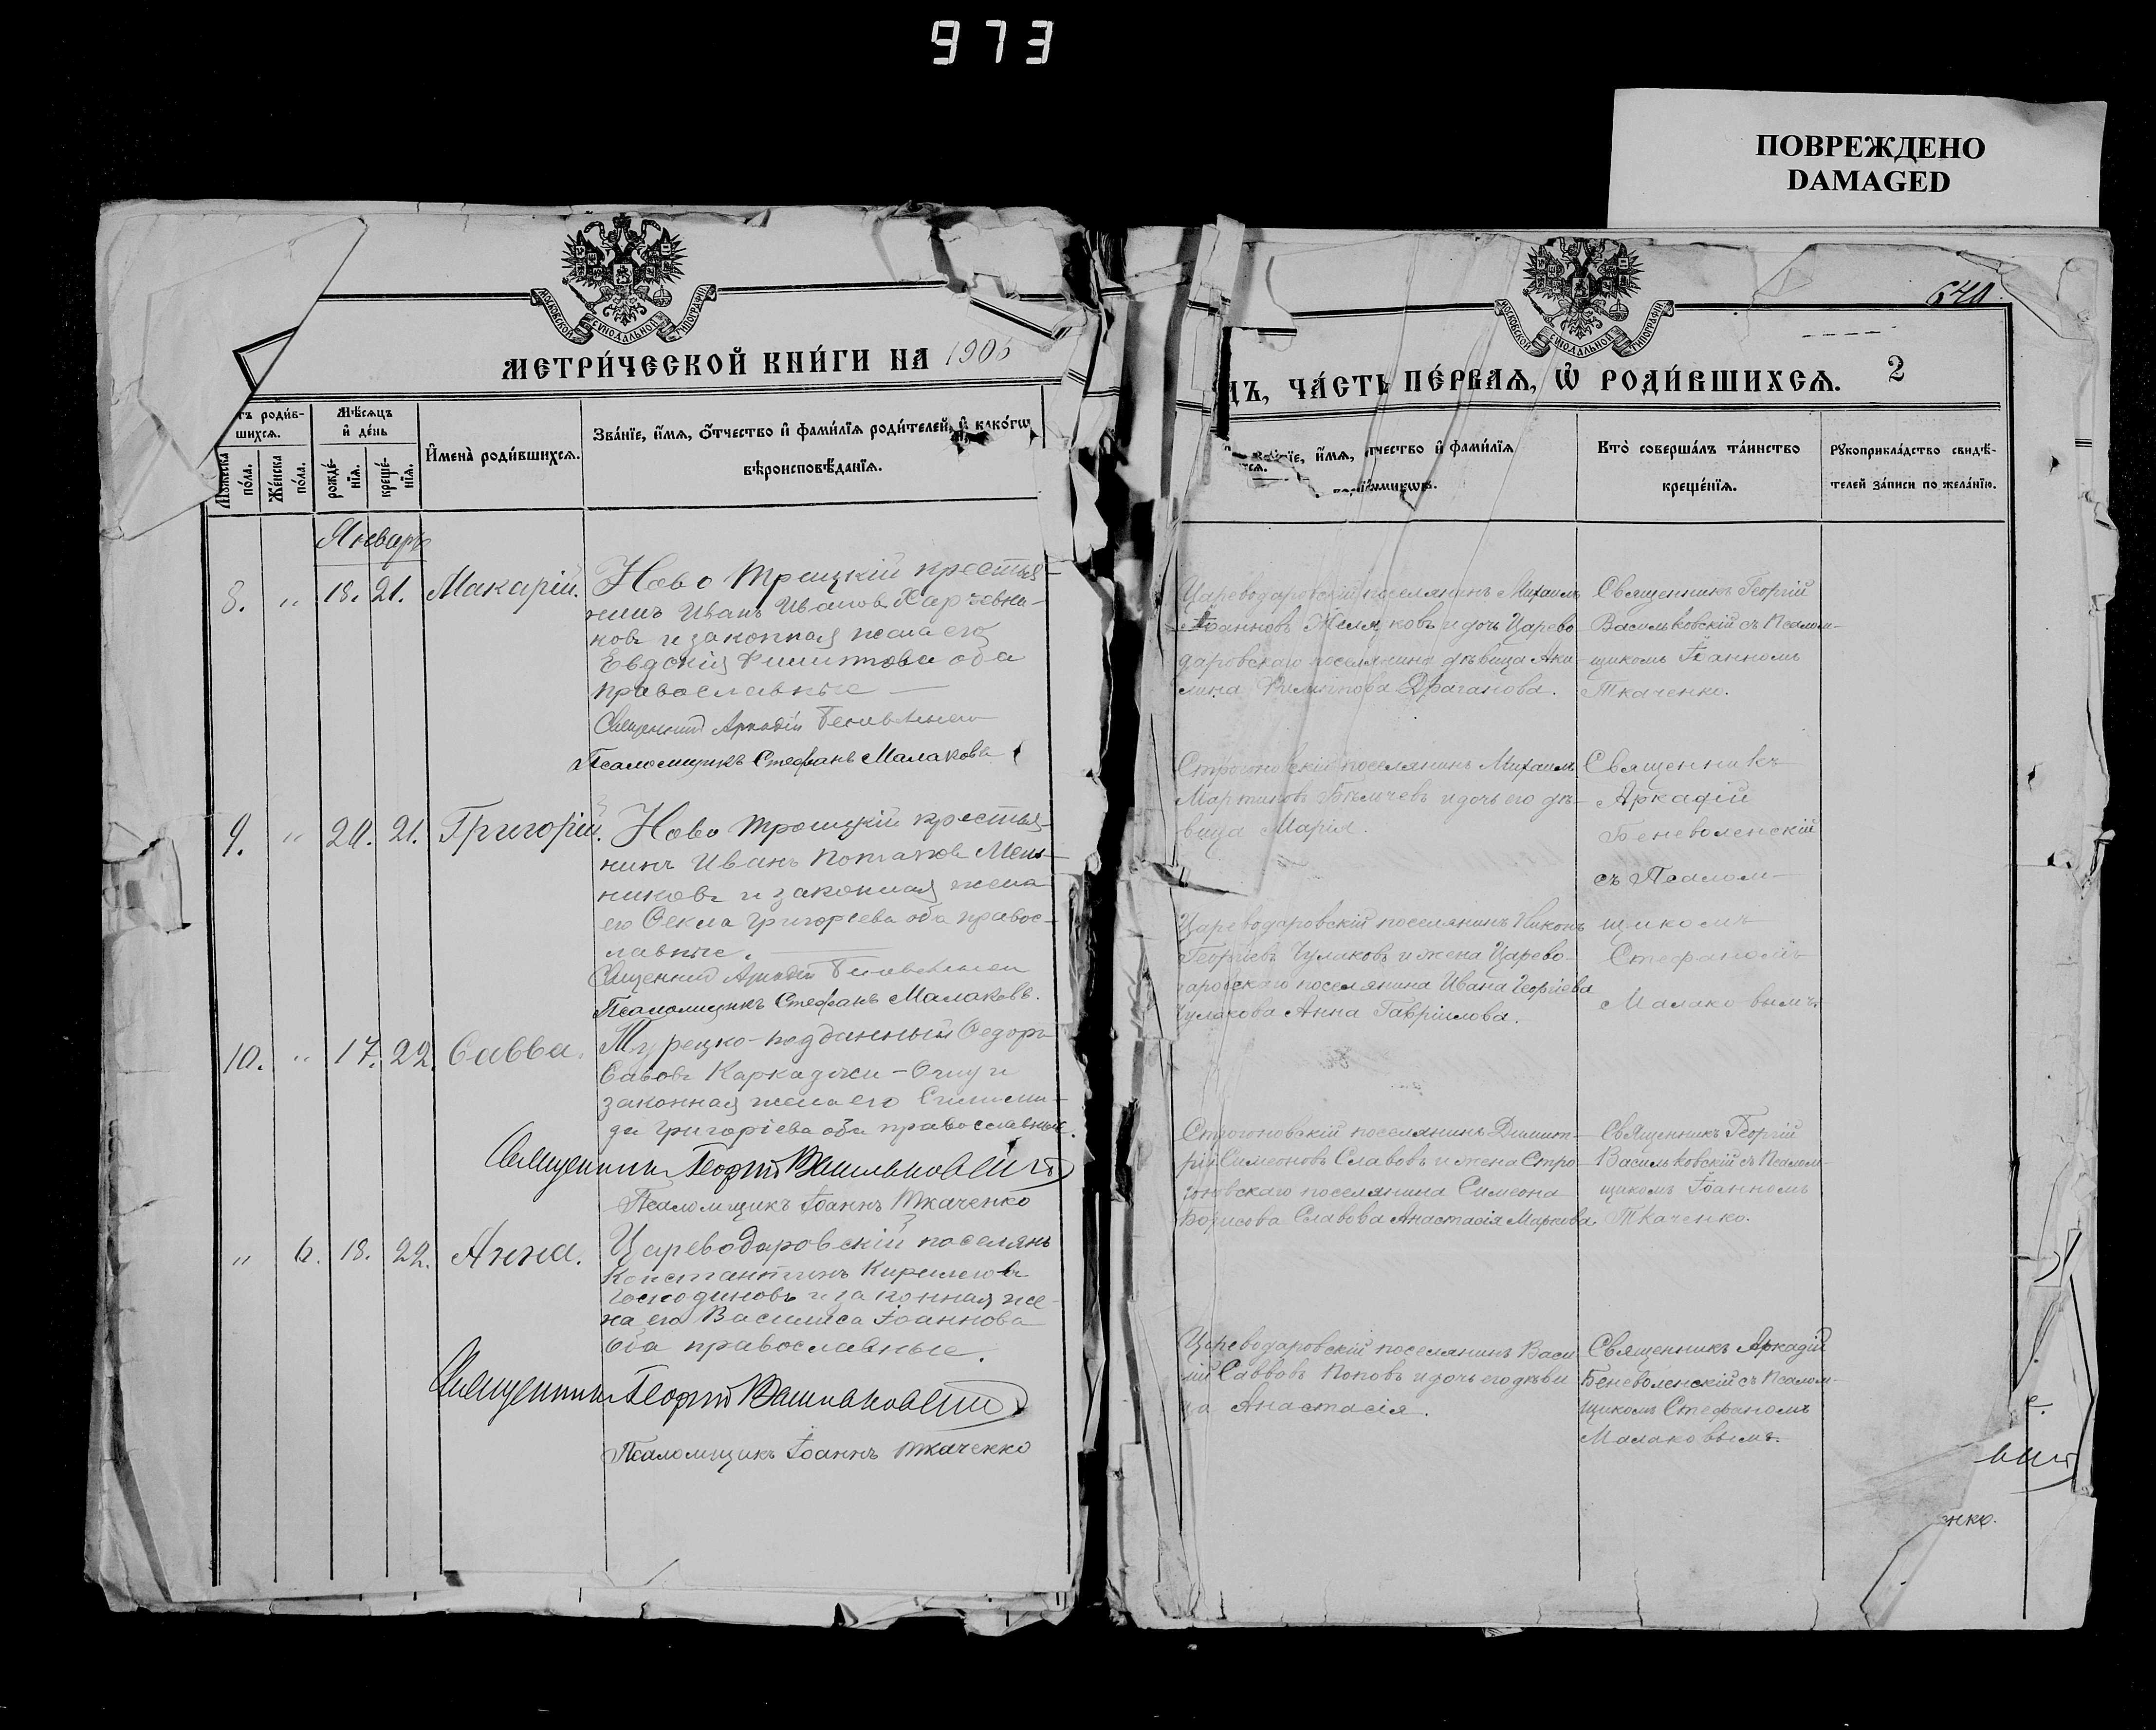 973
ПОВРЕЖДЕНО
DAMAGED
МОСКОВСКОЙ СѴНОДАЛЬНОЙ ТИПОГРАФІИ
МЕТРИ́ЧЕСКОЙ КНИ́ГИ НА 190
тъ роди́в-
шихся.
Мѣ́сяцъ
и҆ де́нь
Му́жеска по́ла.
Же́нска по́ла.
рожде́нїя.
креще́нїя.
И҆мена̀ роди́вшихся.
Зва́нїе, и҆́мя, ѻ҆́тчество и҆ фами́лїя роди́телей, и҆ како́гѡ
вѣроисповѣ́данїя.
Январь
8. " 18. 21. Макарій.
Ново Троицкій крестья-
нинъ Иванъ Ивановъ Харчевни-
ковъ и законная жена его
Евдокія Филиппова оба
православные —
Священникъ Аркадій Беневоленскій
Псаломщикъ Стефанъ Малаковъ
9. " 20. 21. Григорій.
Ново Троицкій крестья-
нинъ Иванъ Потаповъ Мель-
никовъ и законная жена
его Ѳекла Григорьева оба правос-
лавные.
Священникъ Аркадій Беневоленскій
Псаломщикъ Стефанъ Малаковъ.
10. " 17. 22. Савва.
Турецко-подданный Ѳедоръ
Савовъ Каркаджи-Оглу и
законная жена его
Григоріева оба православные.
Священникъ Георгій Васильковскій
Псаломщикъ Іоаннъ Ткаченко
" 6. 18. 22. Анна.
Цареводаровскій поселянъ
Константинъ Кирилловъ
Господиновъ и законная же-
на его Васлиса Іоаннова
оба православные.
Священникъ Георгій Васильковскій
Псаломщикъ Іоаннъ Ткаченко
640
МОСКОВСКОЙ СѴНОДАЛЬНОЙ ТИПОГРАФІИ
дъ, ЧА́СТЬ ПЕ́РВАЯ, Ѽ РОДИ́ВШИХСЯ. 2
нїе, и҆́мя, тчество и҆ фами́лїя
прїе́мникѡвъ.
Кто̀ соверша́лъ та́инство
креще́нїя.
Рꙋкоприкла́дство свидѣ́-
телей за́писи по жела́нїю.
Цареводаровскій поселянинъ Михаилъ
Іоанновъ Желяковъ и дочь Царево-
даровскаго поселянина дѣвица Аки-
лина Филиппова Драганова.
Священникъ Георгій
Васильковскій съ Псалом-
щикомъ Іоанномъ
Ткаченко.
Строгоновскій поселянинъ Михаилъ
Мартиновъ Бѣлчевъ и дочь его дѣ-
вица Марія.
Священникъ
Аркадій
Беневоленскій
съ Псалом-
щикомъ
Стефаномъ
Малаковымъ
Цареводаровскій поселянинъ Никонъ
Георгіевъ Чулаковъ и жена Царево-
даровскаго поселянина Ивана Георгіева
Чулакова Анна Гавріилова.
Строгоновскій поселянинъ Димит-
рій Симеоновъ Славовъ и жена Стро-
гоновскаго поселянина Симеона
Борисова Славова Анастасія Маркова.
Священникъ Георгій
Васильковскій съ Псалом-
щикомъ Іоанномъ
Ткаченко.
Цареводаровскій поселянинъ Васи-
лій Саввовъ Поповъ и дочь его дѣви-
ца Анастасія.
Священникъ Аркадій
Беневоленскій съ Псалом-
щикомъ Стефаномъ
Малаковымъ.
нко.